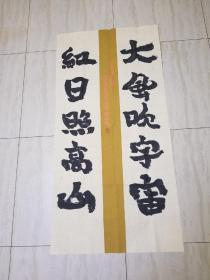 大风吹宇宙
红日照高山